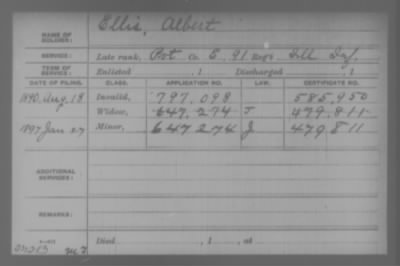 Ellis, Albert
NAME OF SOLDIER:
SERVICE: Late rank, Pvt Co. E, 91 Reg't Ill Inf.
TERM OF SERVICE: Enlisted , 1 Discharged , 1
DATE OF FILING. CLASS. APPLICATION NO. LAW. CERTIFICATE NO.
1890 Aug. 18 Invalid, 797,098 585,950
Widow, 647,274 J 479,811
1897 Jan 27 Minor, 647274 J 479811
ADDITIONAL SERVICES:
REMARKS:
Died , 1 , at